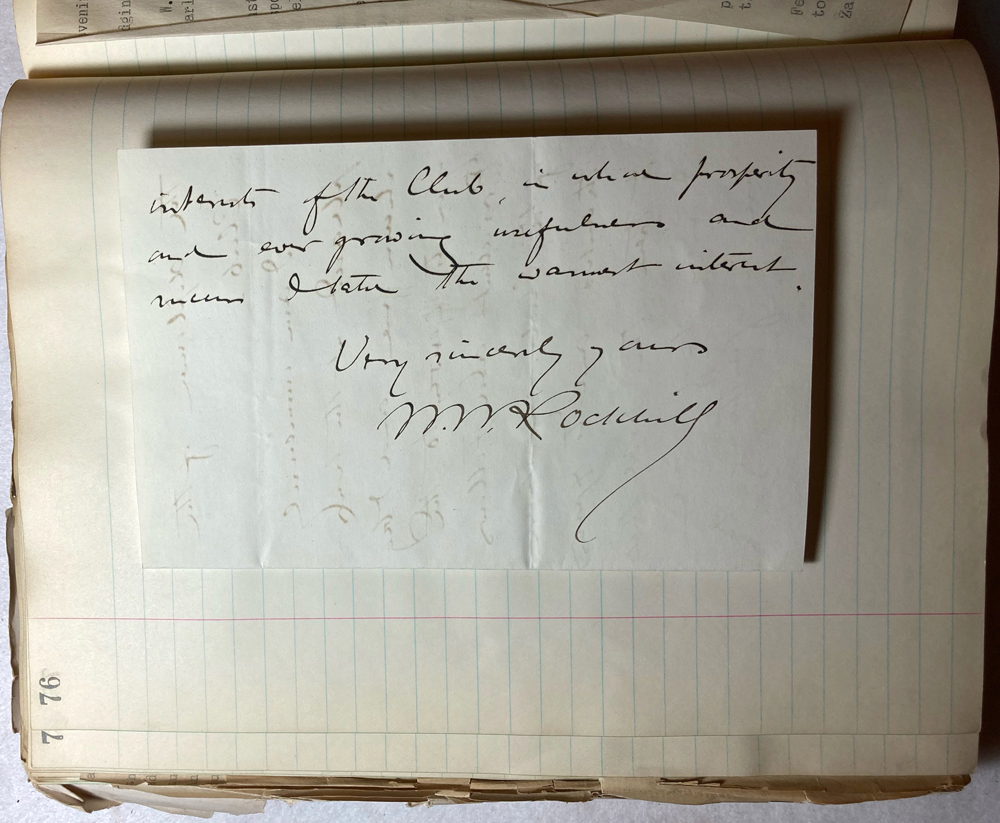 interests of the Club, in whose prosperity
and ever growing usefulness and
success I take the warmest interest.
Very sincerely yours
W. W. Rockhill
7 76